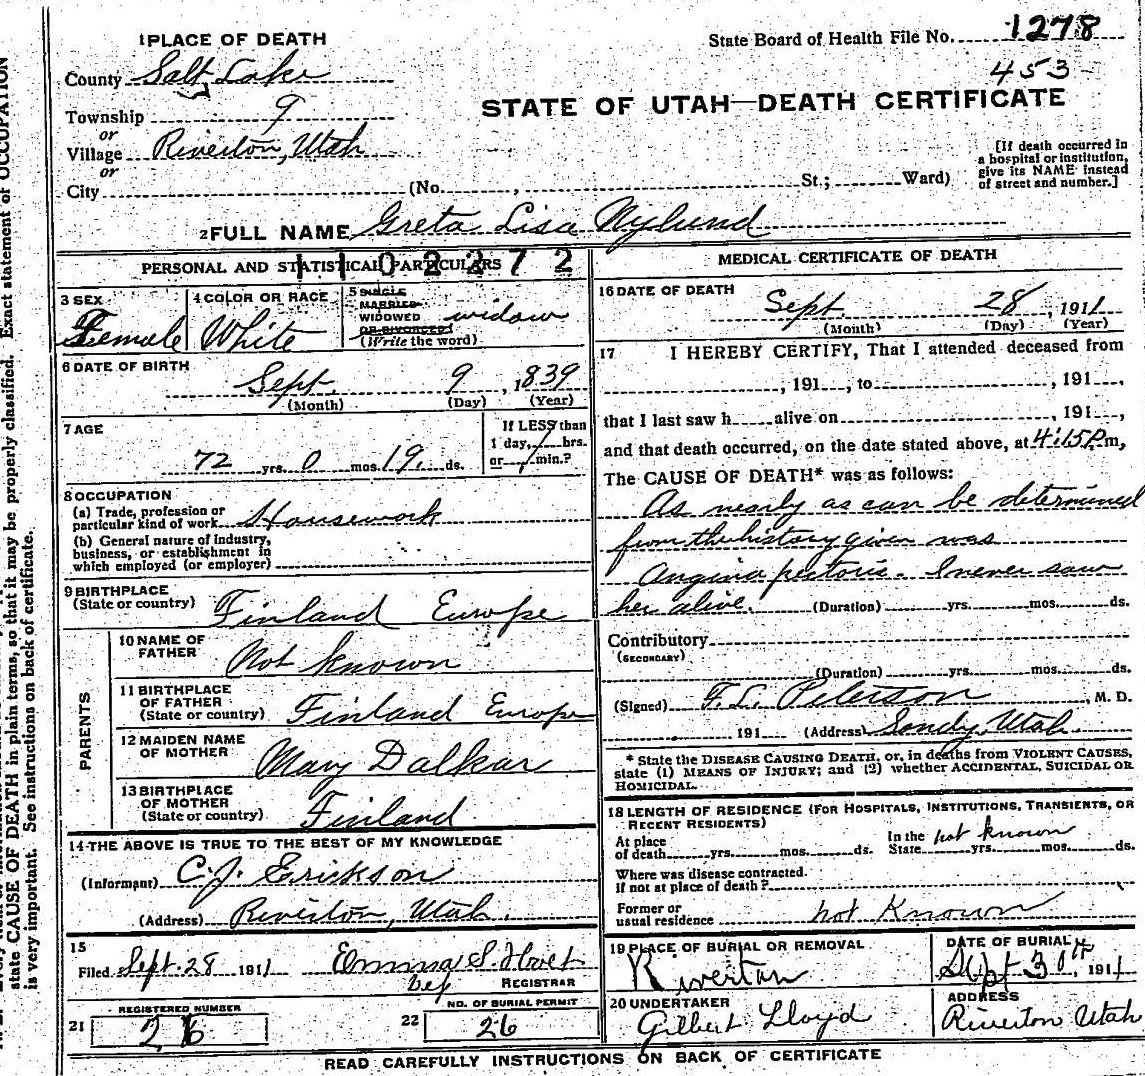 Exact statement of OCCUPATION
state CAUSE OF DEATH in plain terms, so that it may be properly classified.
is very important. See instructions on back of certificate.
1 PLACE OF DEATH
State Board of Health File No. 1278
County Salt Lake
453
STATE OF UTAH—DEATH CERTIFICATE
Township 9
or
Village Riverton, Utah
or
City (No. , St.; Ward)
[If death occurred in
a hospital or institution,
give its NAME instead
of street and number.]
2 FULL NAME Greta Lisa Nylund
PERSONAL AND STATISTICAL PARTICULARS
1102272
3 SEX
Female
4 COLOR OR RACE
White
5 SINGLE
MARRIED
WIDOWED widow
OR DIVORCED
(Write the word)
6 DATE OF BIRTH
Sept. 9, 1839
(Month) (Day) (Year)
7 AGE
72 yrs. 0 mos. 19. ds.
If LESS than
1 day, hrs.
or min.?
8 OCCUPATION
(a) Trade, profession or
particular kind of work Housework
(b) General nature of industry,
business, or establishment in
which employed (or employer)
9 BIRTHPLACE
(State or country) Finland Europe
PARENTS
10 NAME OF
FATHER Not known
11 BIRTHPLACE
OF FATHER
(State or country) Finland Europe
12 MAIDEN NAME
OF MOTHER Mary Dalkar
13 BIRTHPLACE
OF MOTHER
(State or country) Finland
14 THE ABOVE IS TRUE TO THE BEST OF MY KNOWLEDGE
(Informant) C. J. Erickson
(Address) Riverton, Utah.
15
Filed Sept. 28 1911 Emma S.
REGISTRAR
REGISTERED NUMBER
21 26
NO. OF BURIAL PERMIT
22 26
MEDICAL CERTIFICATE OF DEATH
16 DATE OF DEATH
Sept. 28, 1911
(Month) (Day) (Year)
17 I HEREBY CERTIFY, That I attended deceased from
, 191 , to , 191 ,
that I last saw h alive on , 191 ,
and that death occurred, on the date stated above, at 4:15 P.m,
The CAUSE OF DEATH* was as follows:
As nearly as can be determined
from the history given was
Angina pectoris. I never saw
her alive. (Duration) yrs. mos. ds.
Contributory
(SECONDARY)
(Duration) yrs. mos. ds.
(Signed) F. L. Peterson, M. D.
191 (Address) Sandy, Utah.
* State the DISEASE CAUSING DEATH, or, in deaths from VIOLENT CAUSES,
state (1) MEANS OF INJURY; and (2) whether ACCIDENTAL, SUICIDAL OR
HOMICIDAL.
18 LENGTH OF RESIDENCE (FOR HOSPITALS, INSTITUTIONS, TRANSIENTS, OR
RECENT RESIDENTS)
At place
of death yrs. mos. ds.
In the
State not known yrs. mos. ds.
Where was disease contracted.
if not at place of death?
Former or
usual residence not Known
19 PLACE OF BURIAL OR REMOVAL
Riverton
DATE OF BURIAL
Sept 30th, 1911
20 UNDERTAKER
Gilbert Lloyd
ADDRESS
Riverton Utah
READ CAREFULLY INSTRUCTIONS ON BACK OF CERTIFICATE